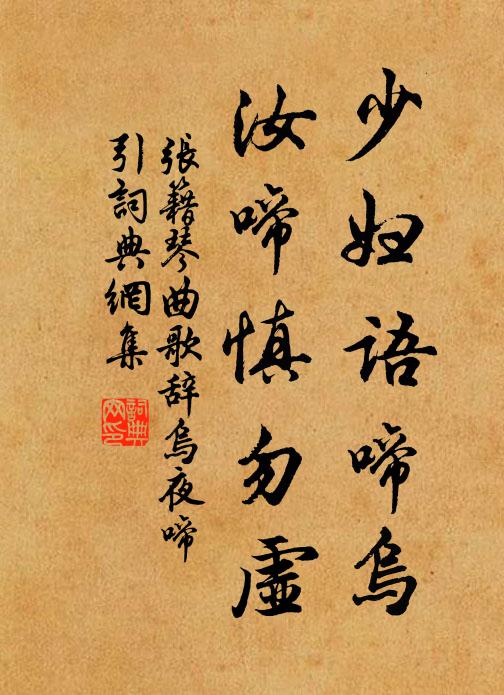 少妇語啼烏
汝啼慎勿虛
張籍琴曲歌辞烏夜啼
引詞典網集
詞典網印